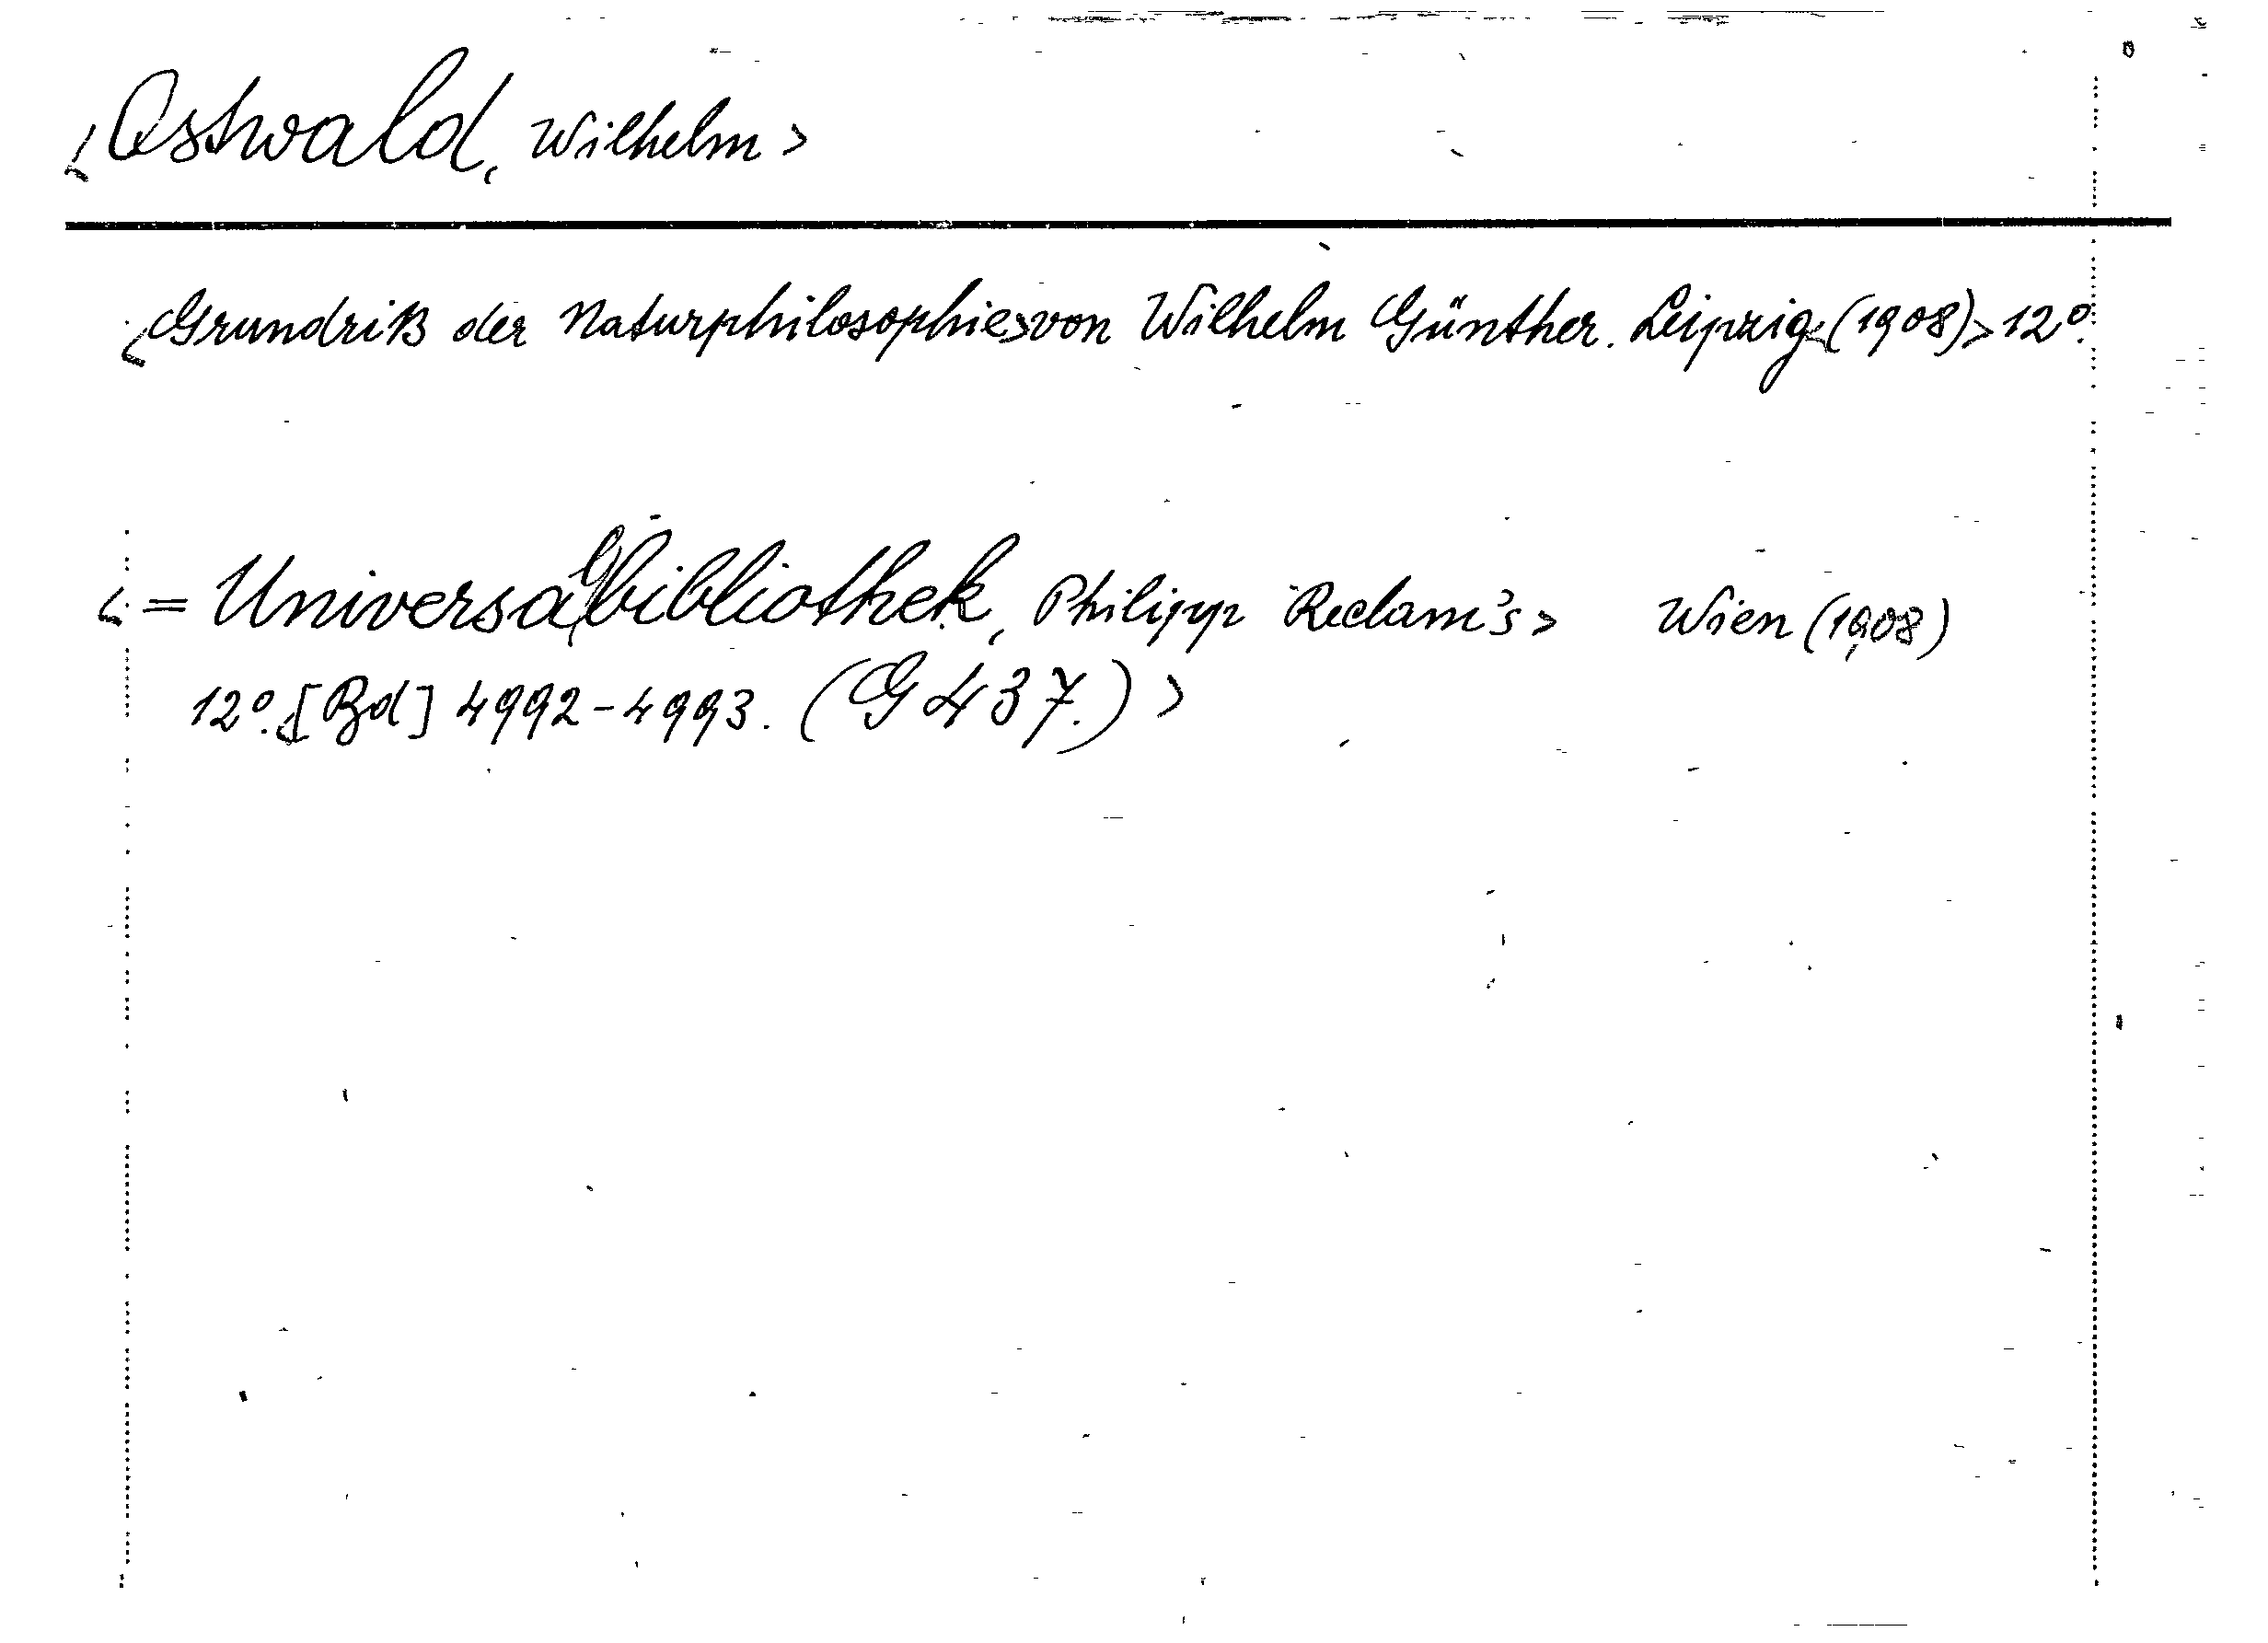 <Ostwald, Wilhelm>
<Grundriß der Naturphilosophie> von Wilhelm Günther. Leipzig <(1908)> 12º.
<= Universalbibliothek, Philipp Reclam's> Wien (1908)
12º. <[Bd] 4992-4993. (G 437.)>